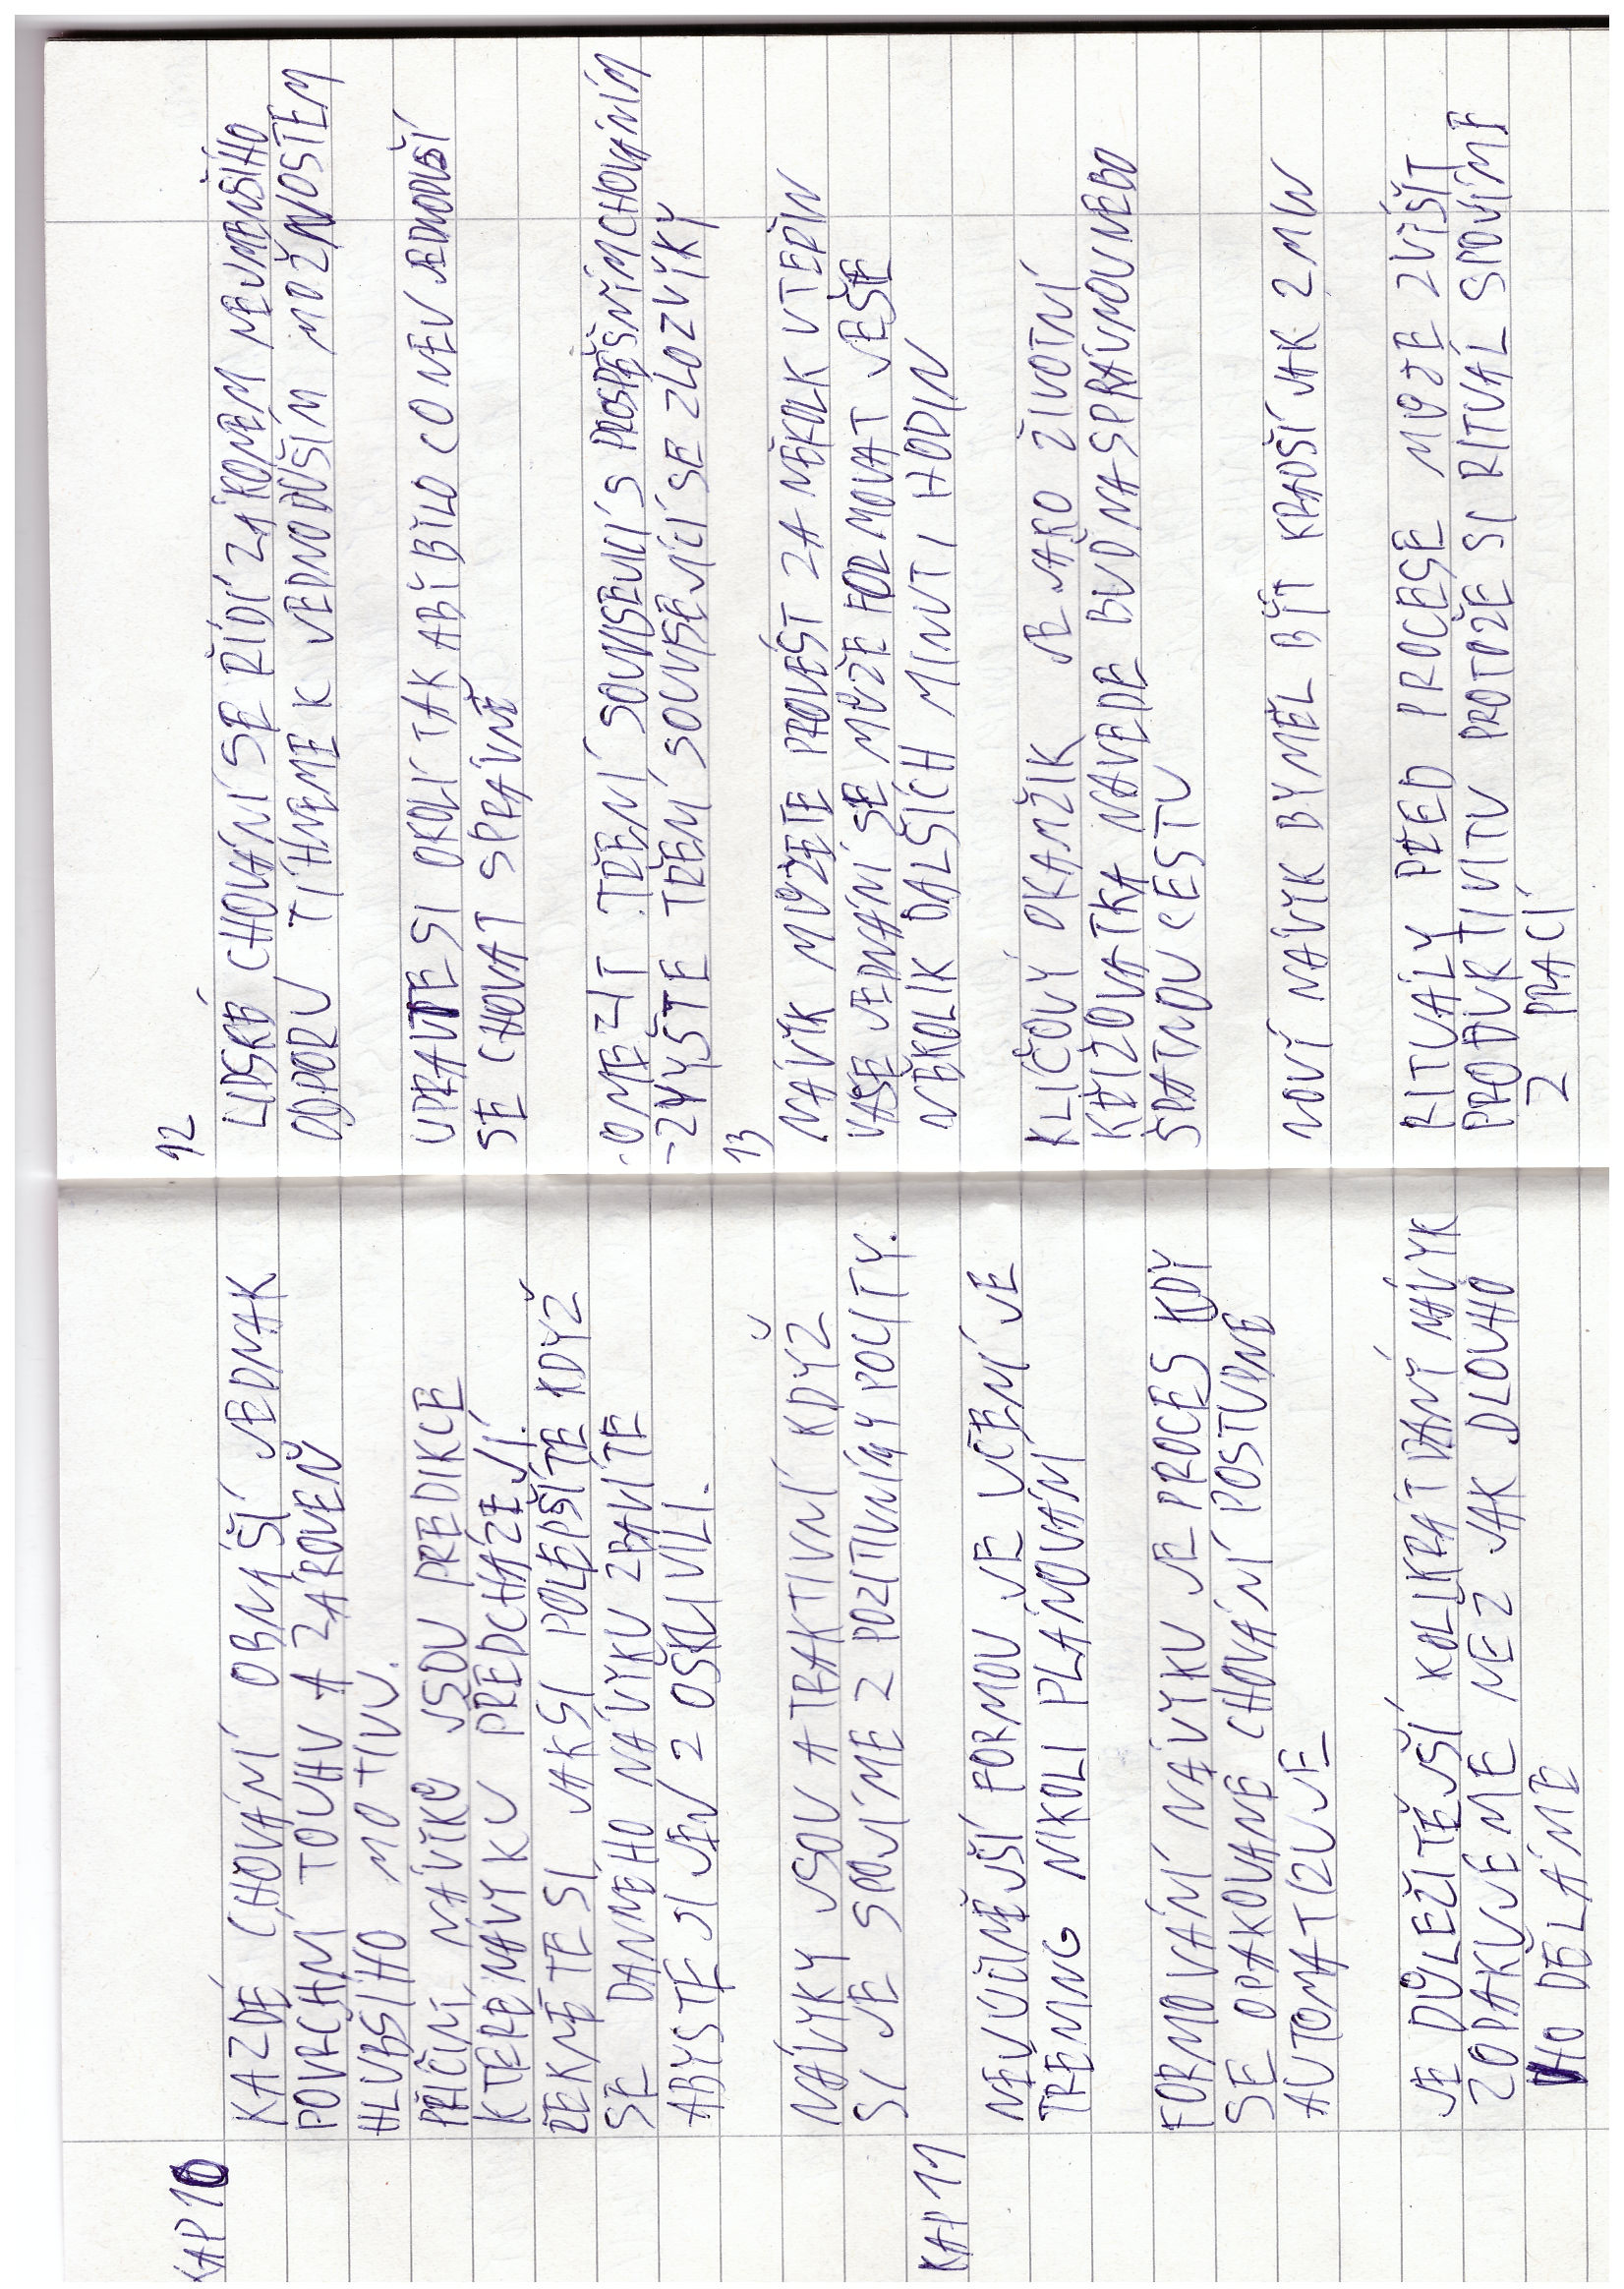 KAP 10
KAZDÉ CHOVÁNÍ OBNÁŠÍ JEDNAK
POVRCHNÍ TOUHU A ZÁROVEŇ
HLUBŠÍHO MOTIVU.
PŘÍČINÍ NÁVIKŮ JSOU PREDIKCE
KTERÉ NÁVYKU PŘEDCHÁZEJÍ.
ŘEKNĚTE SI JAK SI POLEPŠÍTE KDYŽ
SE DANNÉHO NÁVYKU ZBAVÍTE
ABYSTE SI JEN ZOŠKLIVILI.
NÁVYKY JSOU ATRAKTIVNÍ KDYŽ
SI JE SPOJÍME Z POZITIVNÍMY POCITY.
KAP 11
NEJÚČINĚJŠÍ FORMOU JE UČENÍ JE
TRÉNING NIKOLI PLÁNOVÁNÍ
FORMOVÁNÍ NÁVYKU JE PROCES KDY
SE OPAKOVANÉ CHOVÁNÍ POSTUPNĚ
AUTOMATIZUJE
JE DŮLEŽITĚJŠÍ KOLIKRÁT DANÝ NÁVYK
ZOPAKUJEME NEŽ JAK DLOUHO
HO DĚLÁME
12
LIDSKÉ CHOVÁNÍ SE ŘÍDÍ ZÁKONEM NEJMENŠÍHO
ODPORU TÍHNEME K JEDNODUŠÍM MOŽNOSTEM
UPRAVTE SI OKOLÍ TAK ABY BYLO CO NEJ JEDNODUŠÍ
SE CHOVAT SPRÁVNĚ
-OMEZIT TŘENÍ SOUVISEJÍCÍ S PROSPĚŠNÍM CHOVÁNÍM
-ZVYŠTE TŘENÍ SOUVISEJÍCÍ SE ZLOZVYKY
13
NÁVYK MŮŽETE PROVÉST ZA NĚKOLK VTEŘIN
VAŠE JEDNÁNÍ SE MŮŽE FORMOVAT JEŠTE
NĚKOLIK DALŠÍCH MINUT I HODIN
KLÍČOVÝ OKAMŽIK JE JAKO ŽIVOTNÍ
KŘIŽOVATKA NAVEDE BUĎ NA SPRÁVNOU NEBO
ŠPATNOU CESTU
NOVÝ NÁVYK BY MĚL BÝT KRADŠÍ JAK 2 MIN
RITUÁLY PŘED PROCESE MŮŽE ZVÍŠIT
PRODUKTIVITU PROTOŽE SI RITUÁL SPOJÍME
Z PRACÍ